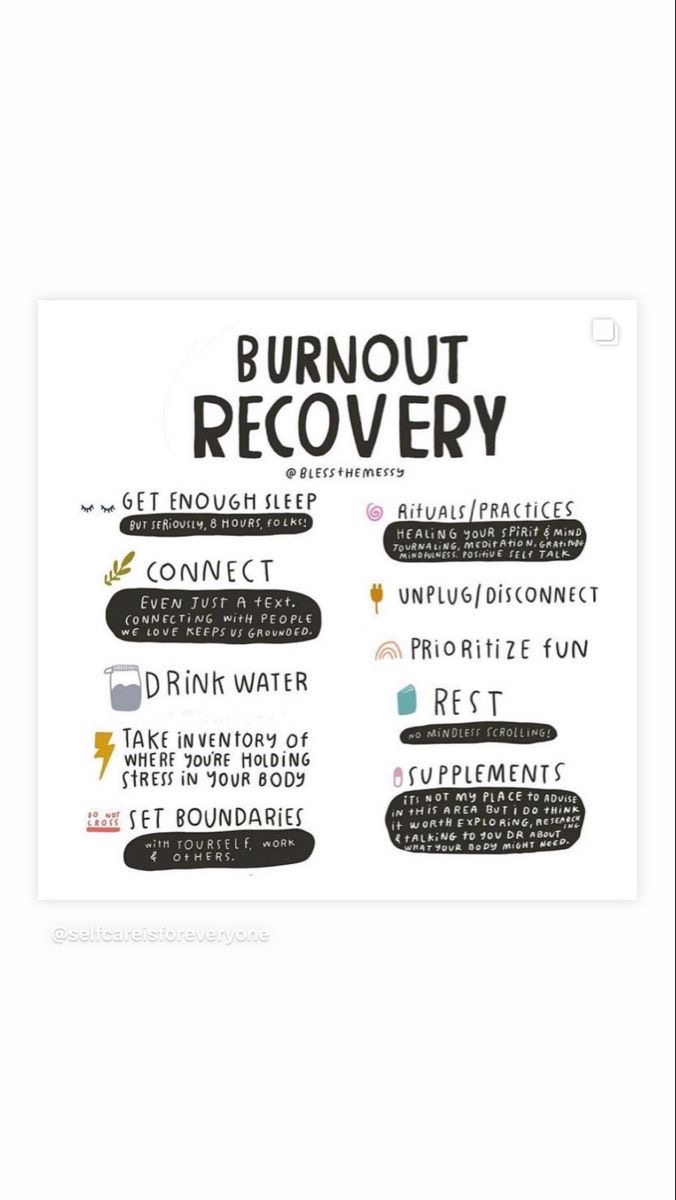 BURNOUT
RECOVERY
@BLESSTHEMESSY
GET ENOUGH SLEEP
BUT SERIOUSLY, 8 HOURS, FOLKS!
CONNECT
EVEN JUST A TEXT.
CONNECTING WITH PEOPLE
WE LOVE KEEPS US GROUNDED.
DRINK WATER
TAKE INVENTORY OF
WHERE YOU'RE HOLDING
STRESS IN YOUR BODY
DO NOT
CROSS
SET BOUNDARIES
WITH YOURSELF, WORK
& OTHERS.
RITUALS/PRACTICES
HEALING YOUR SPIRIT & MIND
JOURNALING, MEDITATION, GRATITUDE
MINDFULNESS. POSITIVE SELF TALK
UNPLUG/DISCONNECT
PRIORITIZE FUN
REST
NO MINDLESS SCROLLING!
SUPPLEMENTS
ITS NOT MY PLACE TO ADVISE
IN THIS AREA BUT I DO THINK
IT WORTH EXPLORING, RESEARCH
ING
& TALKING TO YOU DR ABOUT
WHAT YOUR BODY MIGHT NEED.
@selfcareisforeveryone